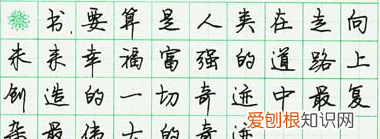 书,要算是人类在走向
未来幸福富强的道路上
创造的一切奇迹中最复
杂最伟大的奇迹
爱刨根知识网